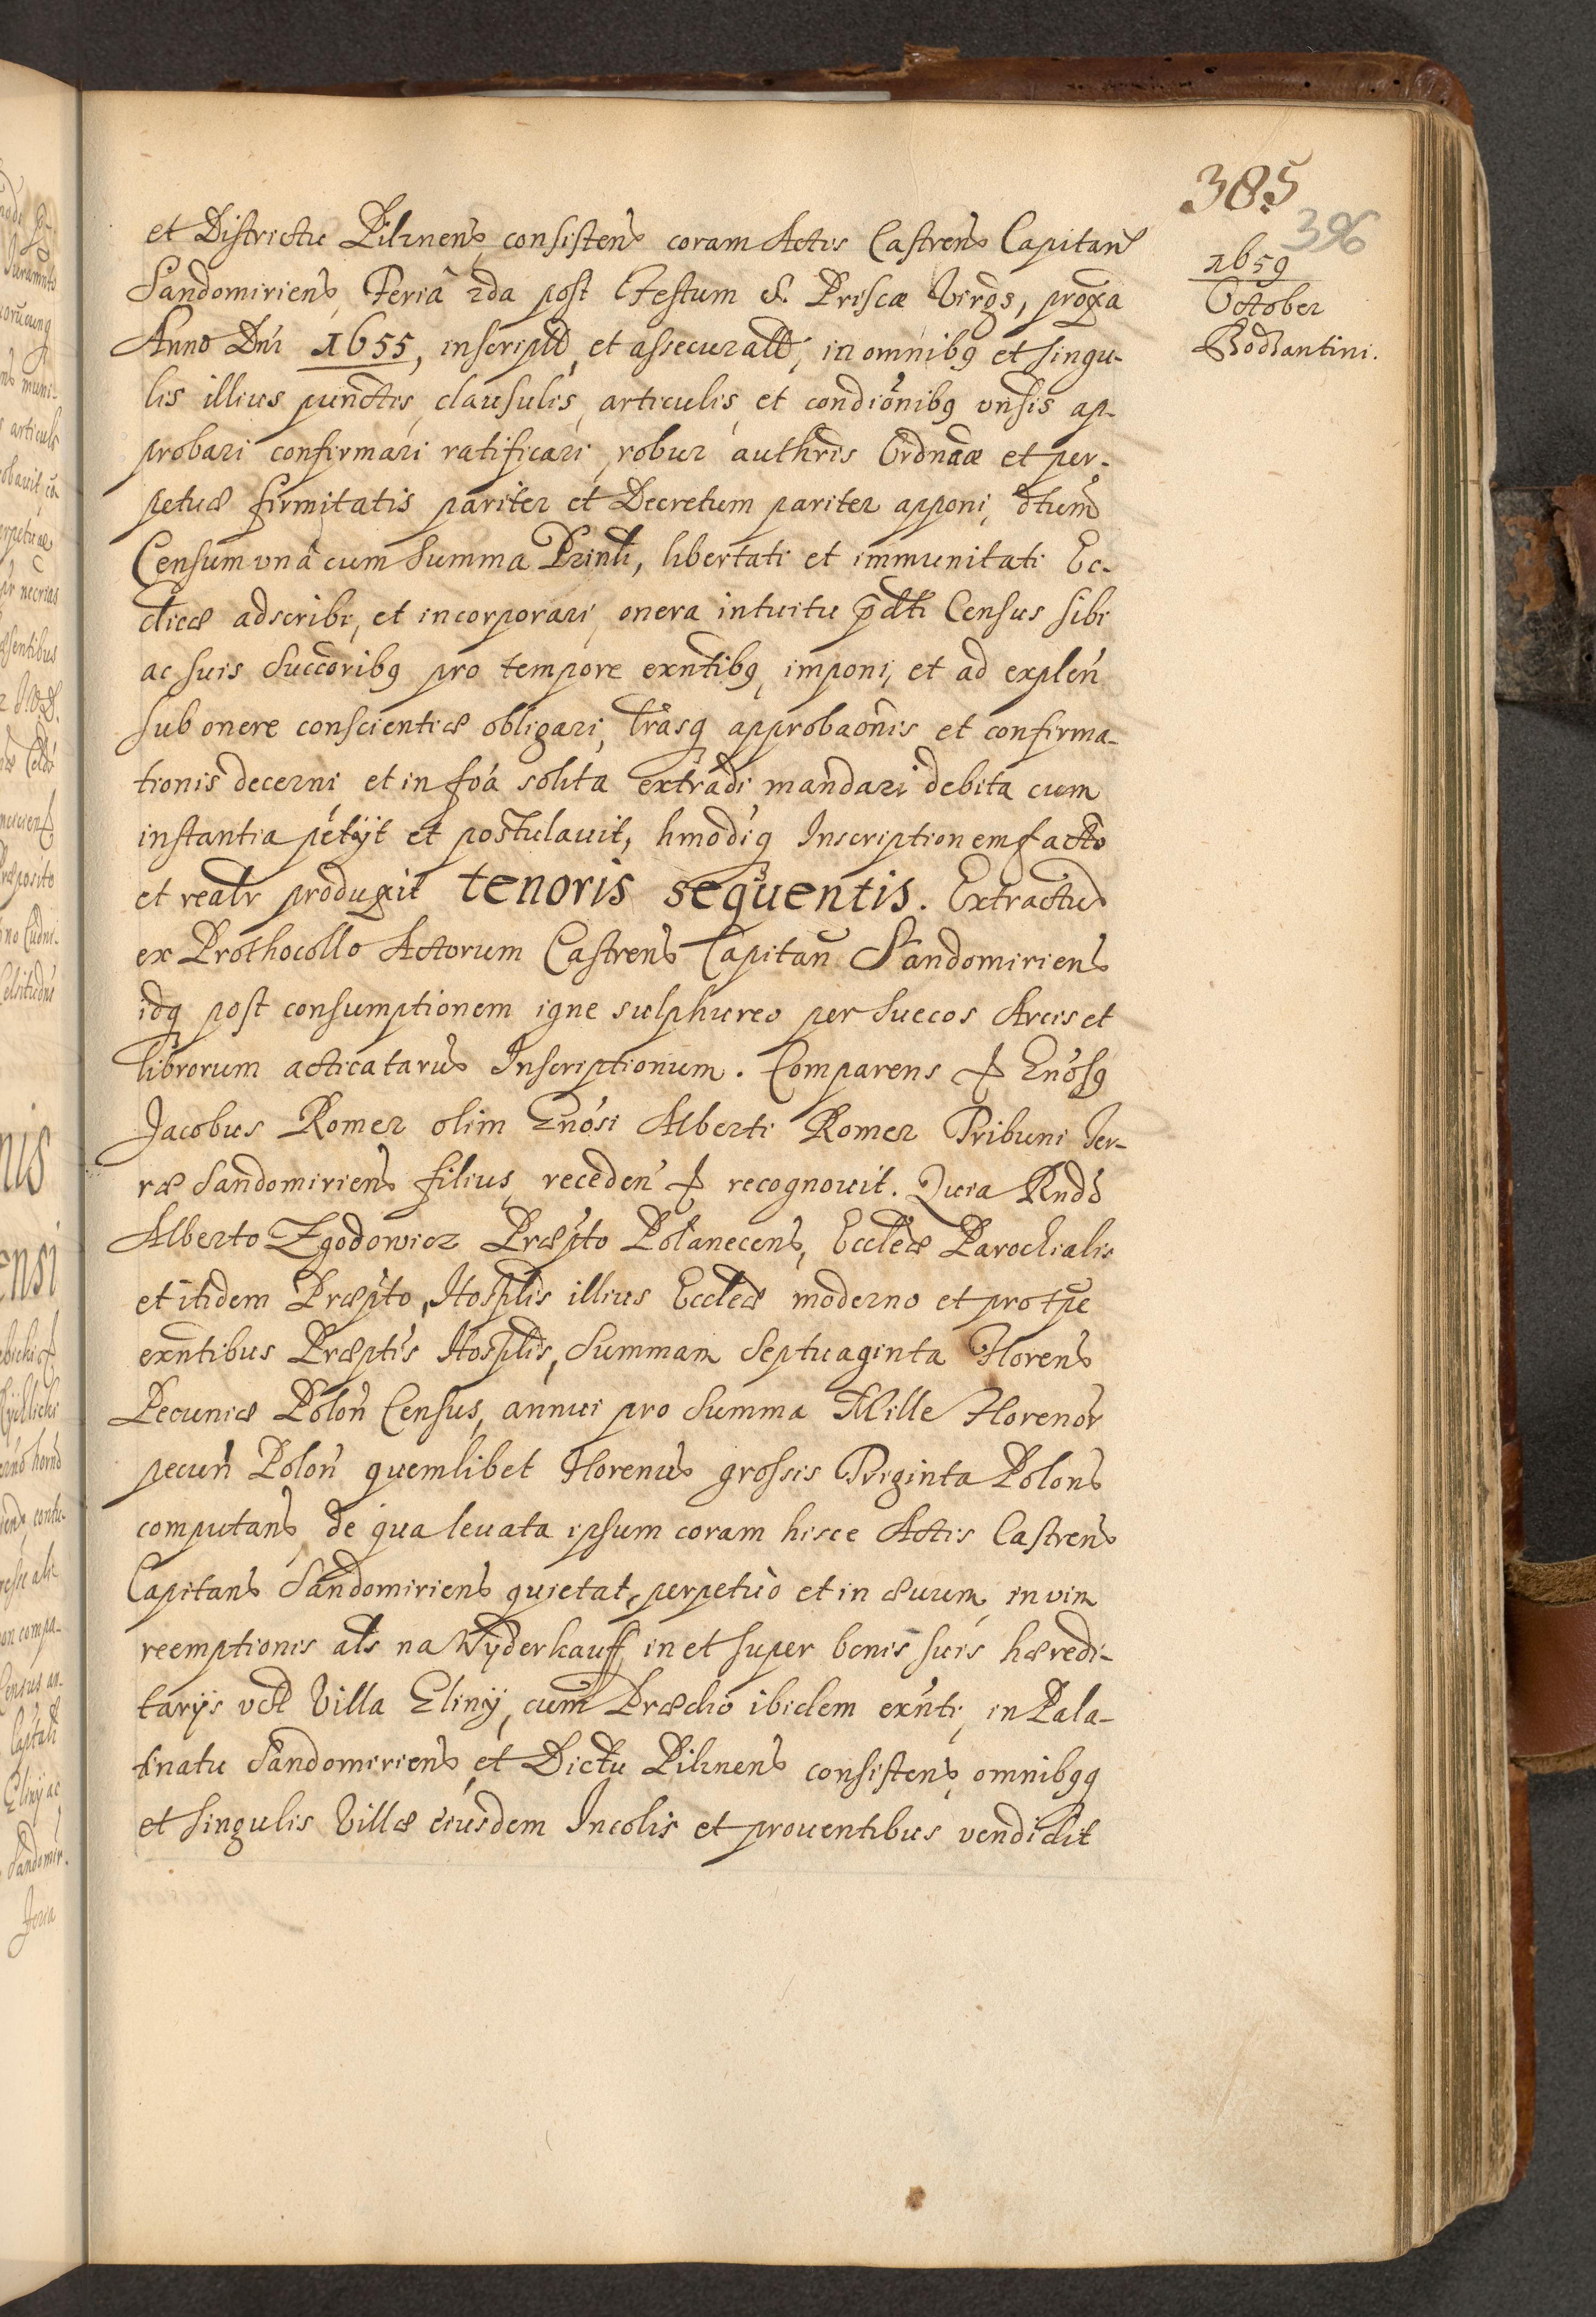 385
396
1659
October
Bodzantini.
et Districtu Pilznens, consistens coram Actis Castrens Capitan
Sandomiriens, Feria 2da post Festum S. Priscæ Virgs, proxa
Anno Dni 1655, inscript, et assecurat, in omnibq et singu-
lis illius punctis, clausulis, articulis et condionibq vnsis ap-
probari confirmari ratificari, robur authris Ordnaæ et per-
petuæ firmitatis pariter et Decretum pariter apponi, dtum
Censum vnà cum Summa Prinli, libertati et immunitati Ec-
cliæ adscribi, et incorporari, onera intuitu pdti Census sibi
ac suis Succoribq pro tempore exntibq, imponi, et ad explen
sub onere conscientiæ obligari, lrasq approbaonis et confirma-
tionis decerni et in foa solita extradi mandari debita cum
instantia petÿt et postulauit, hmodiq Inscriptionem facto
et realr produxit tenoris sequentis. Extractus
ex Prothocollo Actorum Castrens Capitan Sandomiriens
idq post consumptionem igne sulphureo per Suecos Arcis et
librorum acticatarus Inscriptionum. Comparens & Enosq
Jacobus Romer olim Enosi Alberti Romer Tribuni Ter-
ræ Sandomiriens filius, receden & recognouit. Quia Rndo
Alberto Zgodowicz Præpto Polanecens, Eccleæ Parochialis
et itidem Præpto, Hosplis illius Eccleæ moderno et pro tpe
exntibus Præptis Hosplis, Summam Septuaginta Florens
Pecuniæ Polon Census, annui pro Summa Mille Florenor
pecun Polon quemlibet Florenus grossis Triginta Polons
computans, de qua leuata ipsum coram hisce Actis Castrens
Capitans Sandomiriens quietat, perpetuò et in æuum, in vim
reemptionis als na Wÿderkauff, in et super bonis suis hæredi-
tarÿs vdt Villa Elinÿ, cum Prædio ibidem exnti, in Pala-
tinatu Sandomiriens et Dictu Pilznens consistens, omnibqq
et singulis Villæ eiusdem Incolis et prouentibus vendidit